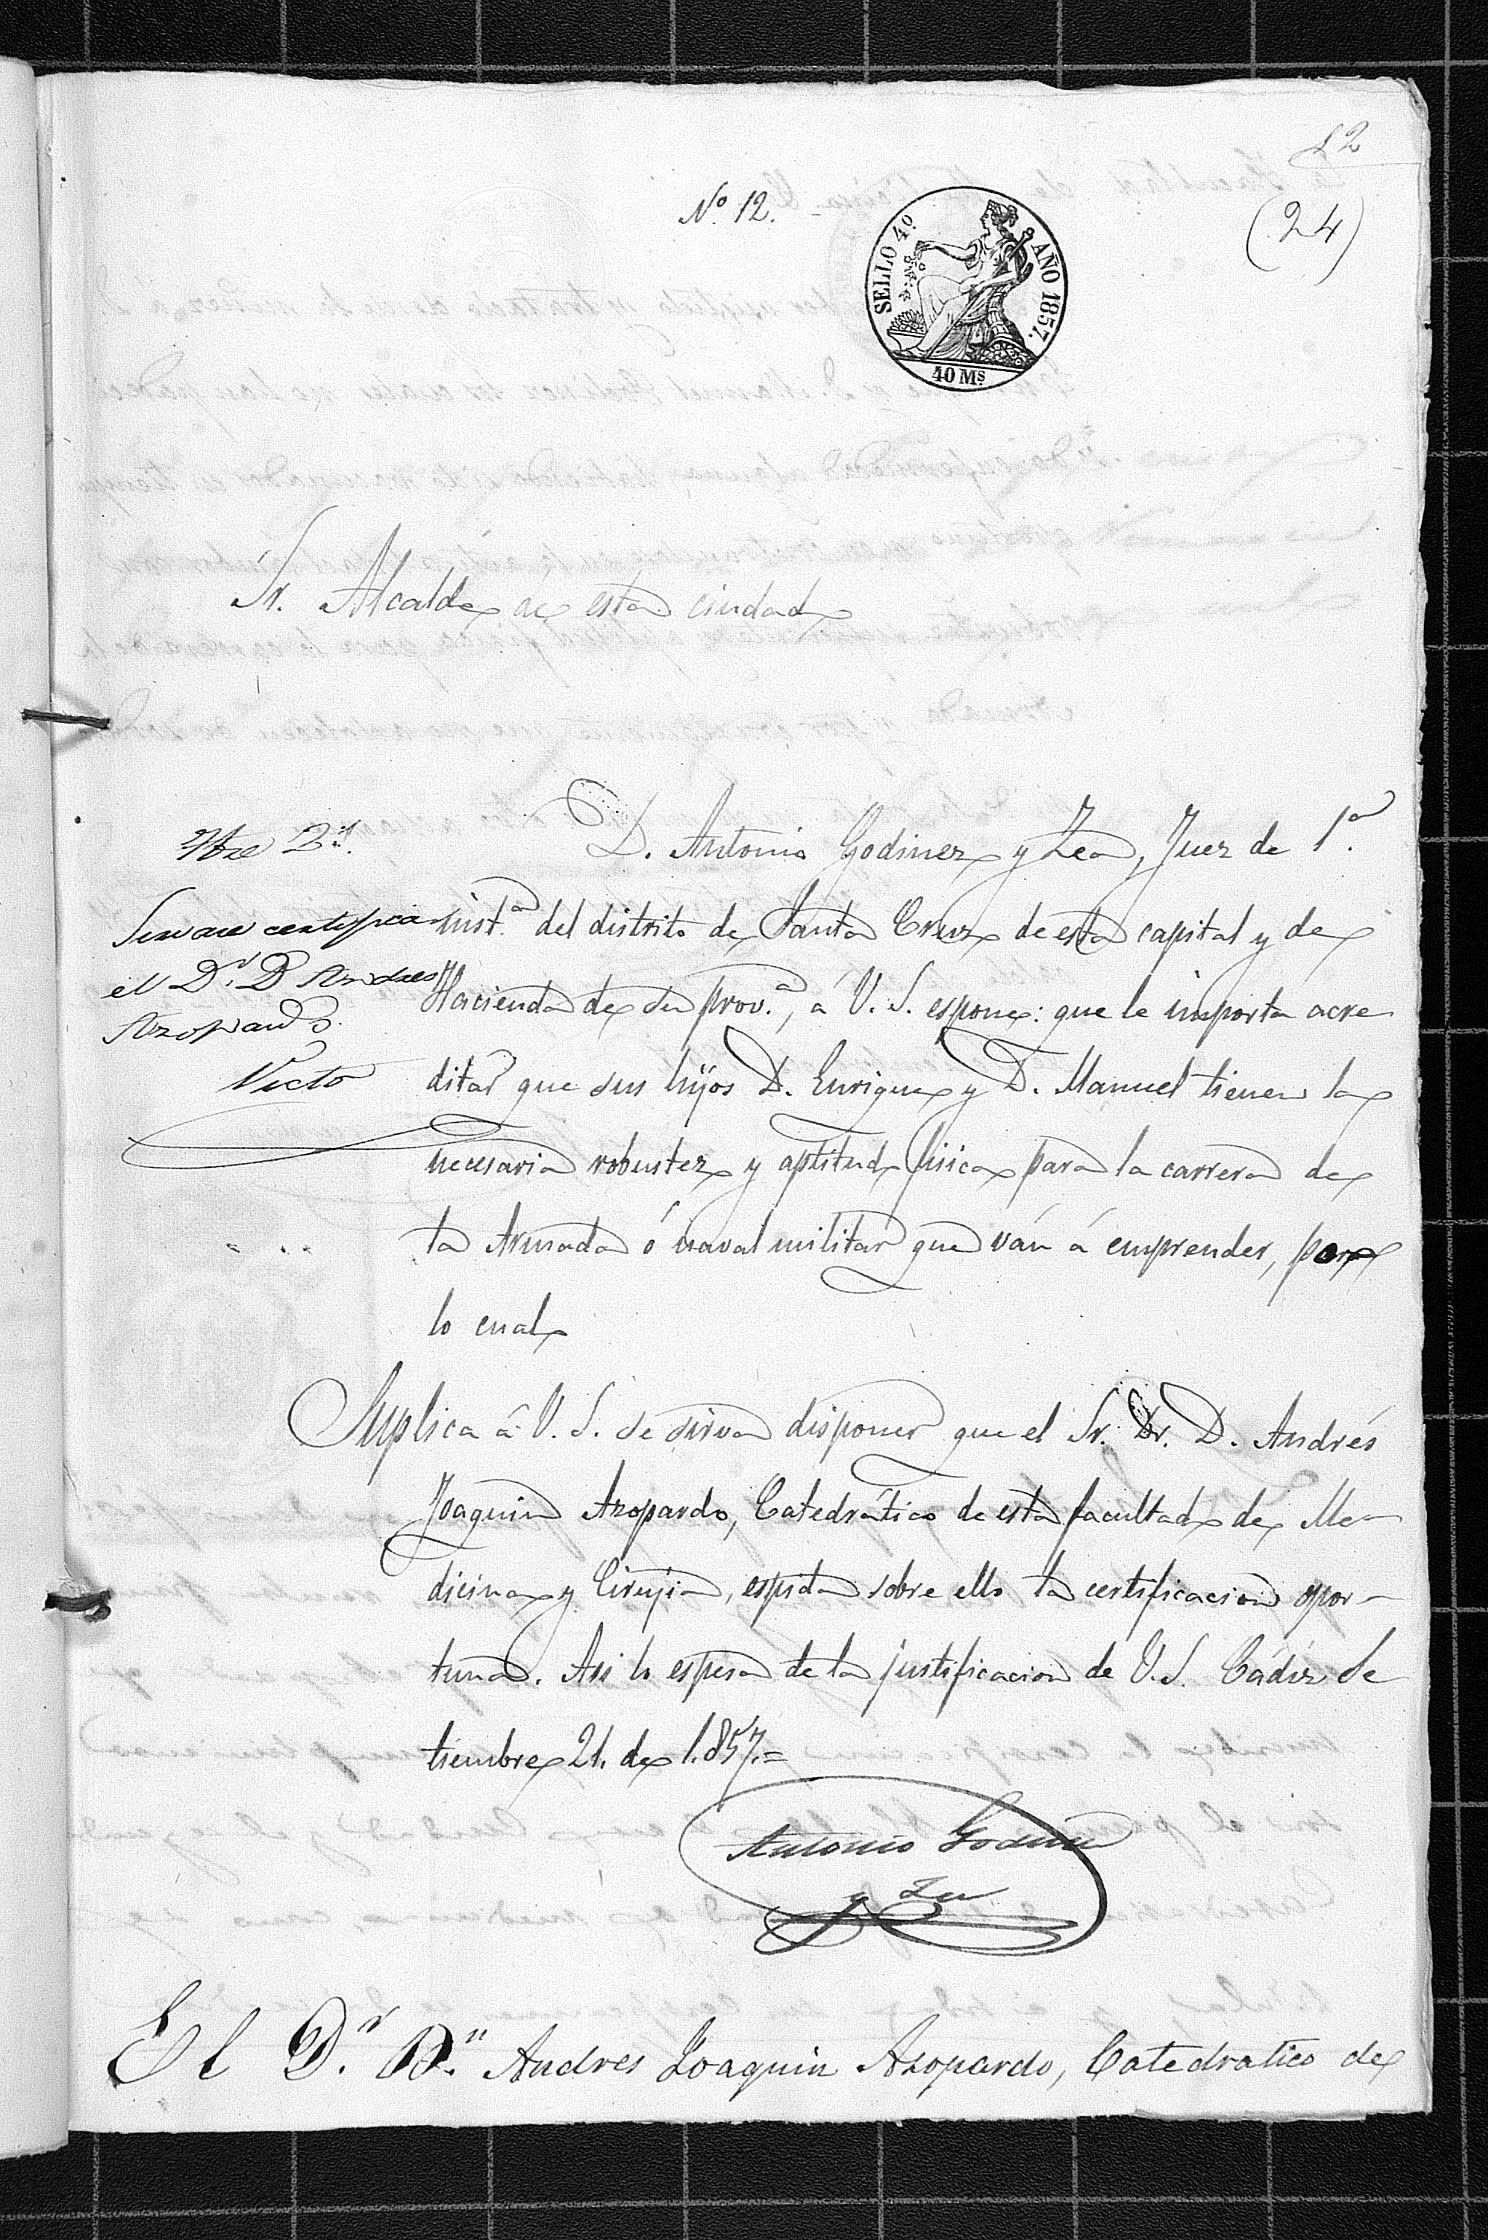 22
Nº 12.
(24)
SELLO 4º AÑO 1857.
40 Ms
Sr. Alcalde de esta ciudad
D. Antonio Godinez y Zea, Juez de 1ª.
inst.ª del distrito de Santa Cruz de esta capital y de
Hacienda de su prov.ª, á V. S. espone: que le importa acre
ditar que sus hijos D. Enrique y D. Manuel tienen la
necesaria robustez y aptitud fisica para la carrera de
la Armada ó naval militar que ván á emprender, por
lo cual
Suplica á V. S. se sirva disponer que el Sr. Dr. D. Andrés
Joaquin Azopardo, Catedrático de esta facultad de Me-
dicina y Cirujia, espida sobre ello la certificacion opor-
tuna. Asi lo espera de la justificacion de V. S. Cádiz Se
tiembre 21. de 1.857.=
Antonio Godinez
y Zea
21.
Sirvase certificar
el Dr. D Andres
Azopardo.
Victo
El D.r D.n Andres Joaquin Azopardo, Catedratico de